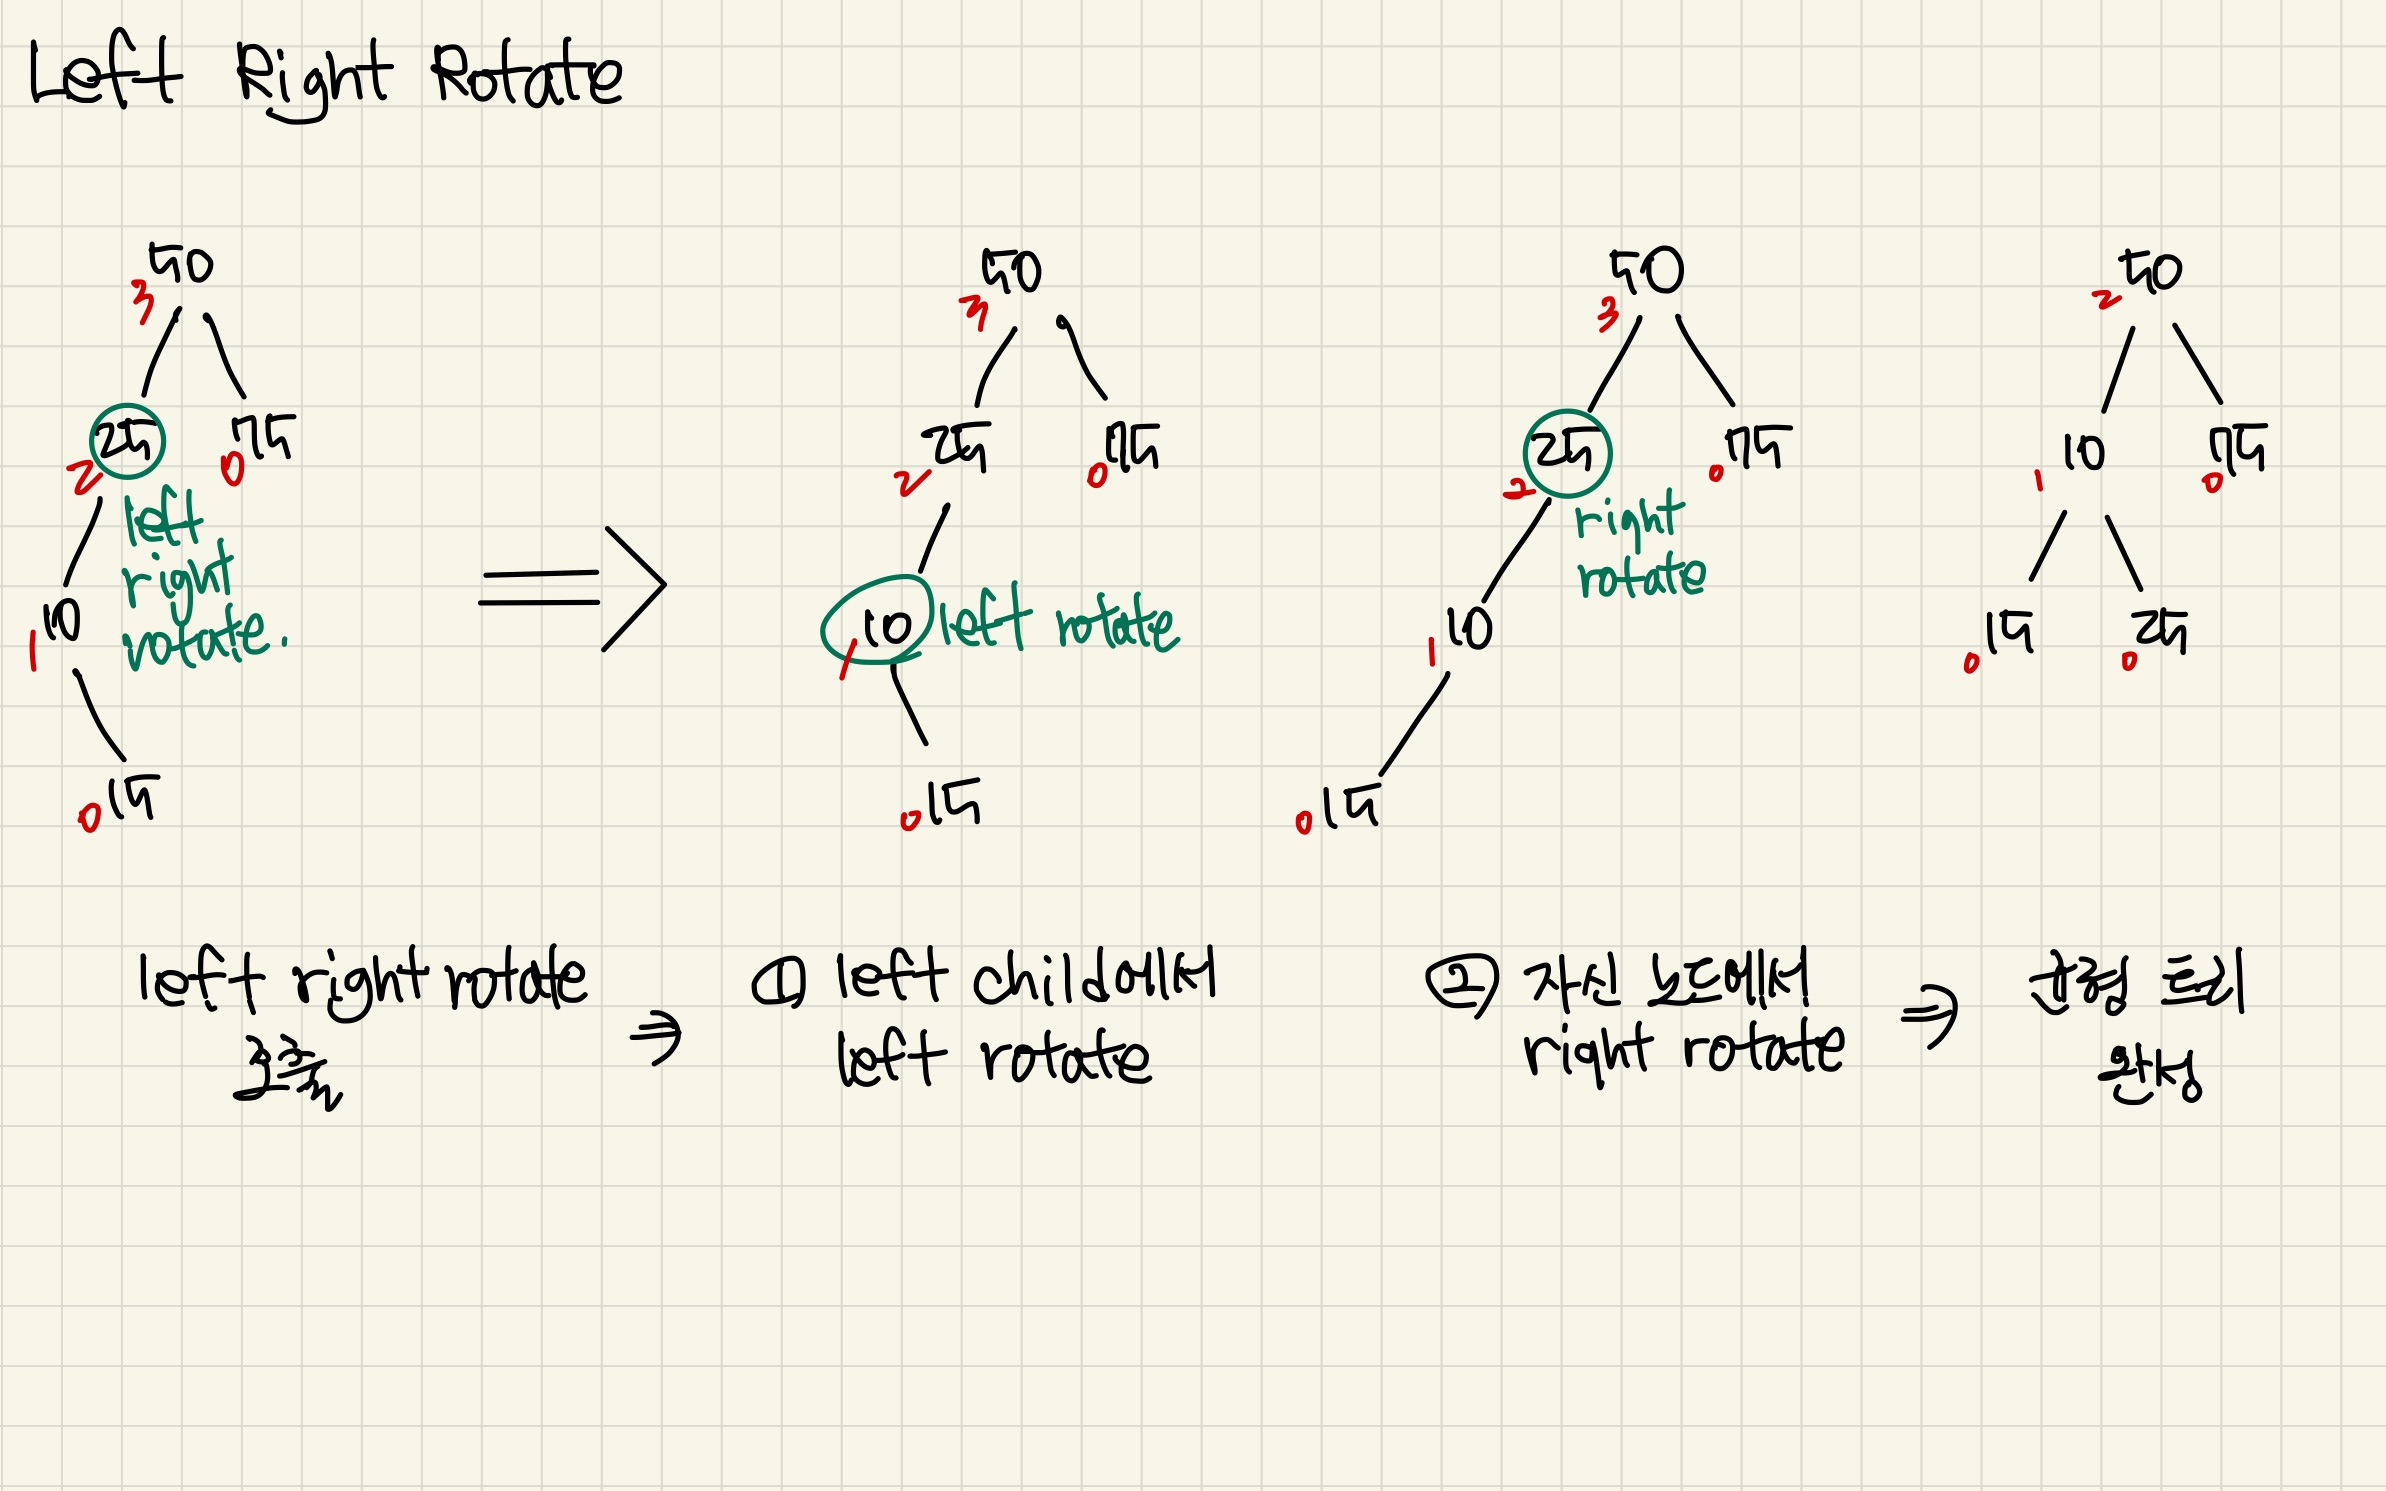 Left Right Rotate
50
3
25
75
2
0
left
right
rotate.
10
1
15
0
50
3
25
75
2
0
10
left rotate
1
15
0
50
3
25
75
2
0
right
rotate
10
1
15
0
50
2
10
75
1
0
15
25
0
0
left right rotate
호출
⇒
① left child에서
left rotate
② 자신 노드에서
right rotate
⇒
균형 트리
완성